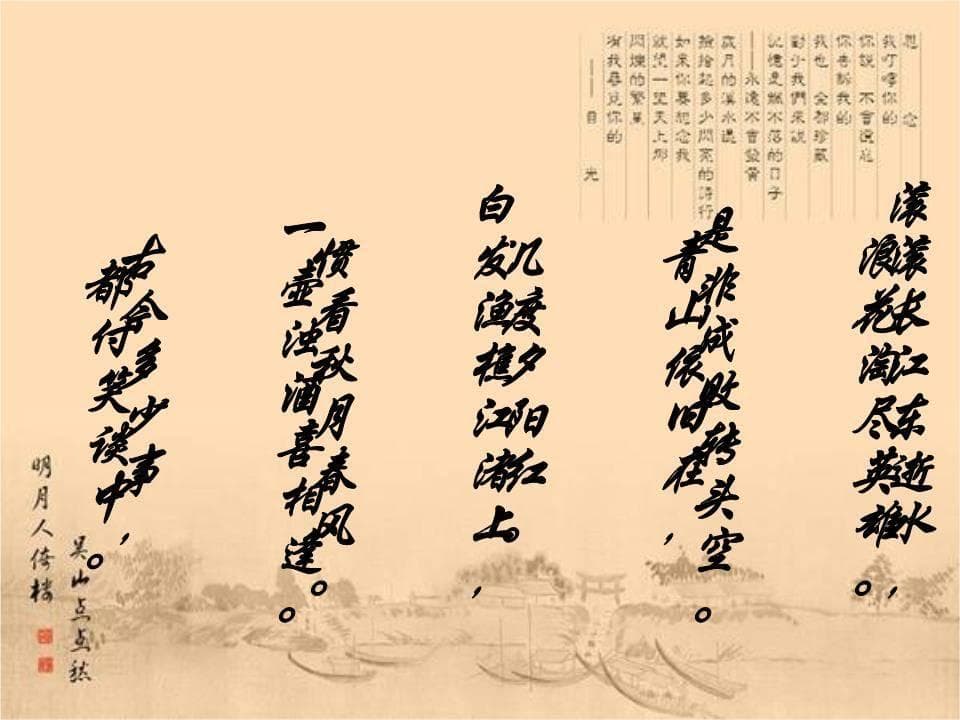 思 念
我叮嚀你的
你說 不會遺忘
你告訴我的
我也 全都珍藏
對於我們來說
記憶是飄不落的日子
——永遠不會發黃
歲月的溪水邊
撿拾起多少閃亮的詩行
如果你要想念我
就望一望天上那
閃爍的繁星
有我尋覓你的
——目 光
滚滚长江东逝水,
浪花淘尽英雄。
是非成败转头空。
青山依旧在,
几度夕阳红。
白发渔樵江渚上,
惯看秋月春风。
一壶浊酒喜相逢。
古今多少事,
都付笑谈中。
吴山点点愁
明月人倚楼